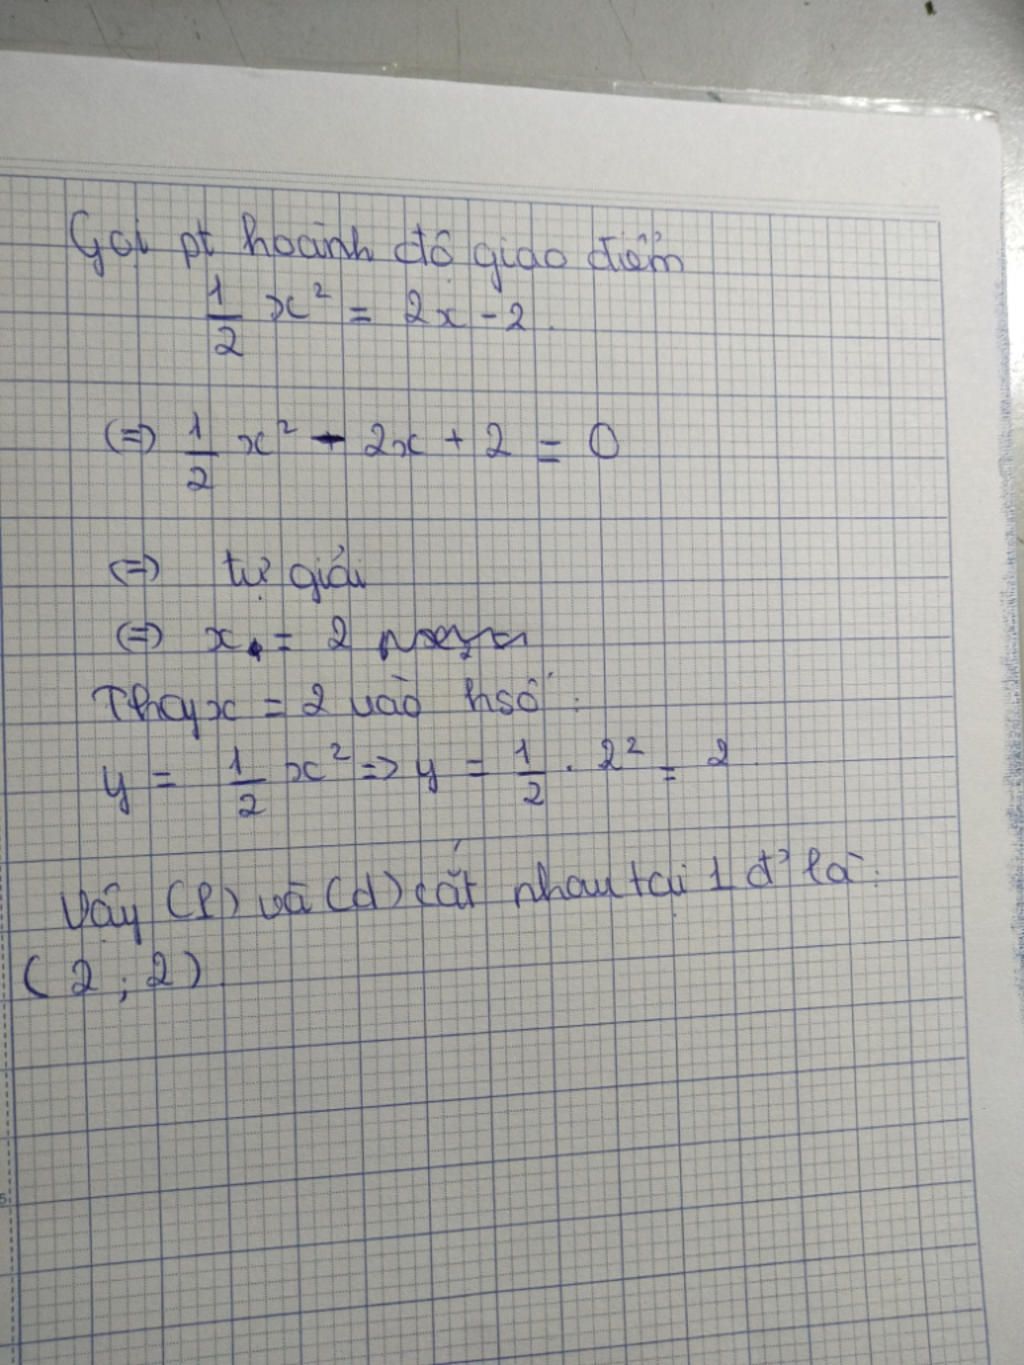 Gọi pt hoành độ giao điểm
1/2 x² = 2x - 2.
(=) 1/2 x² - 2x + 2 = 0
(=) tự giải
(=) x = 2
Thay x = 2 vào hsố :
y = 1/2 x² => y = 1/2 . 2² = 2
Vậy (P) và (d) cắt nhau tại 1 đ' là :
( 2 ; 2 )